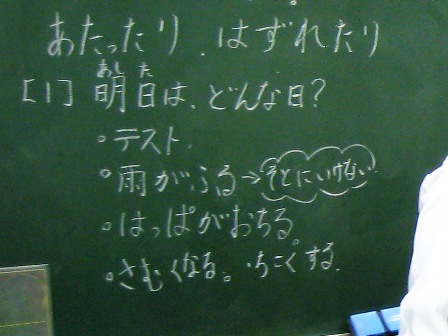 あたったり、はずれたり
[1] 明日は、どんな日?
・テスト.
・雨がふる→そとにいけない
・はっぱがおちる。
・さむくなる。・ちこくする.